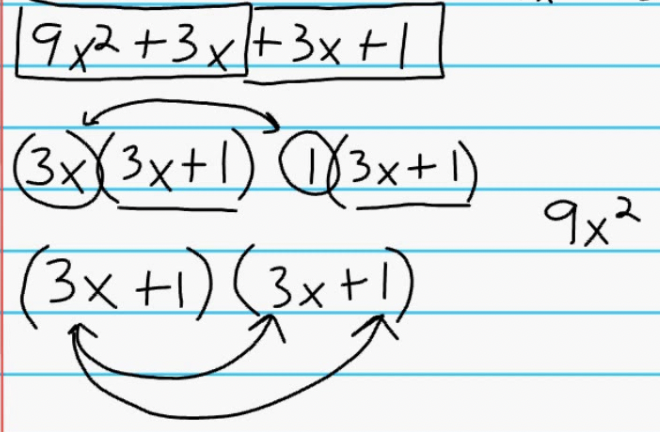 9x² + 3x + 3x + 1
(3x)(3x+1) 1(3x+1)
9x²
(3x+1)(3x+1)